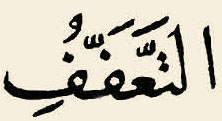 التَّعَفُّفِ